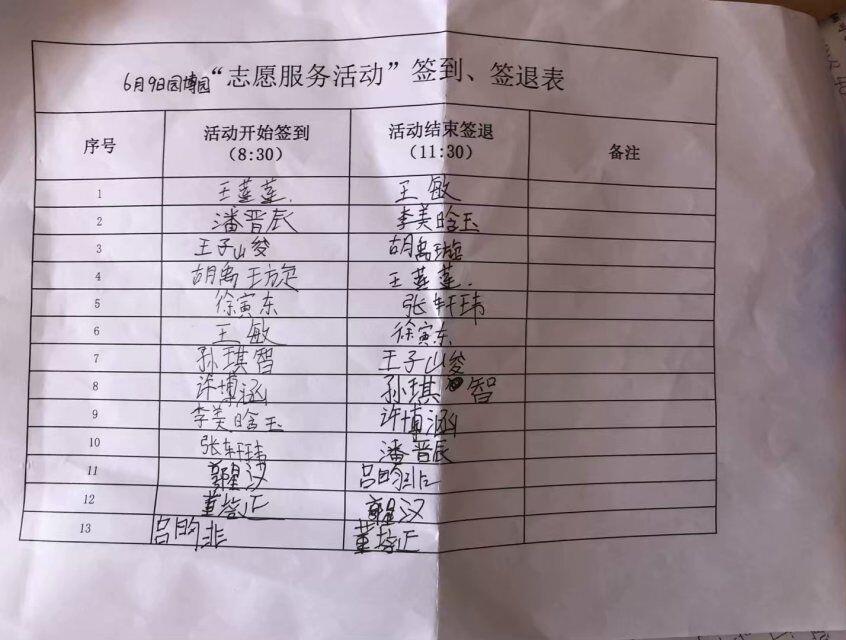 6月9日园博园“志愿服务活动”签到、签退表
序号 活动开始签到 活动结束签退 备注
(8:30) (11:30)
1 王莲莲. 王敏
2 潘晋辰 李美晗玉
3 王子峻 胡禹璇
4 胡禹璇 王莲莲.
5 徐寅东 张轩玮
6 王敏 徐寅东
7 孙琪智 王子峻
8 许博涵 孙琪智
9 李美晗玉 许博涵
10 张轩玮 潘晋辰
11 汉 吕昀非
12 董 正 汉
13 吕昀非 董 正